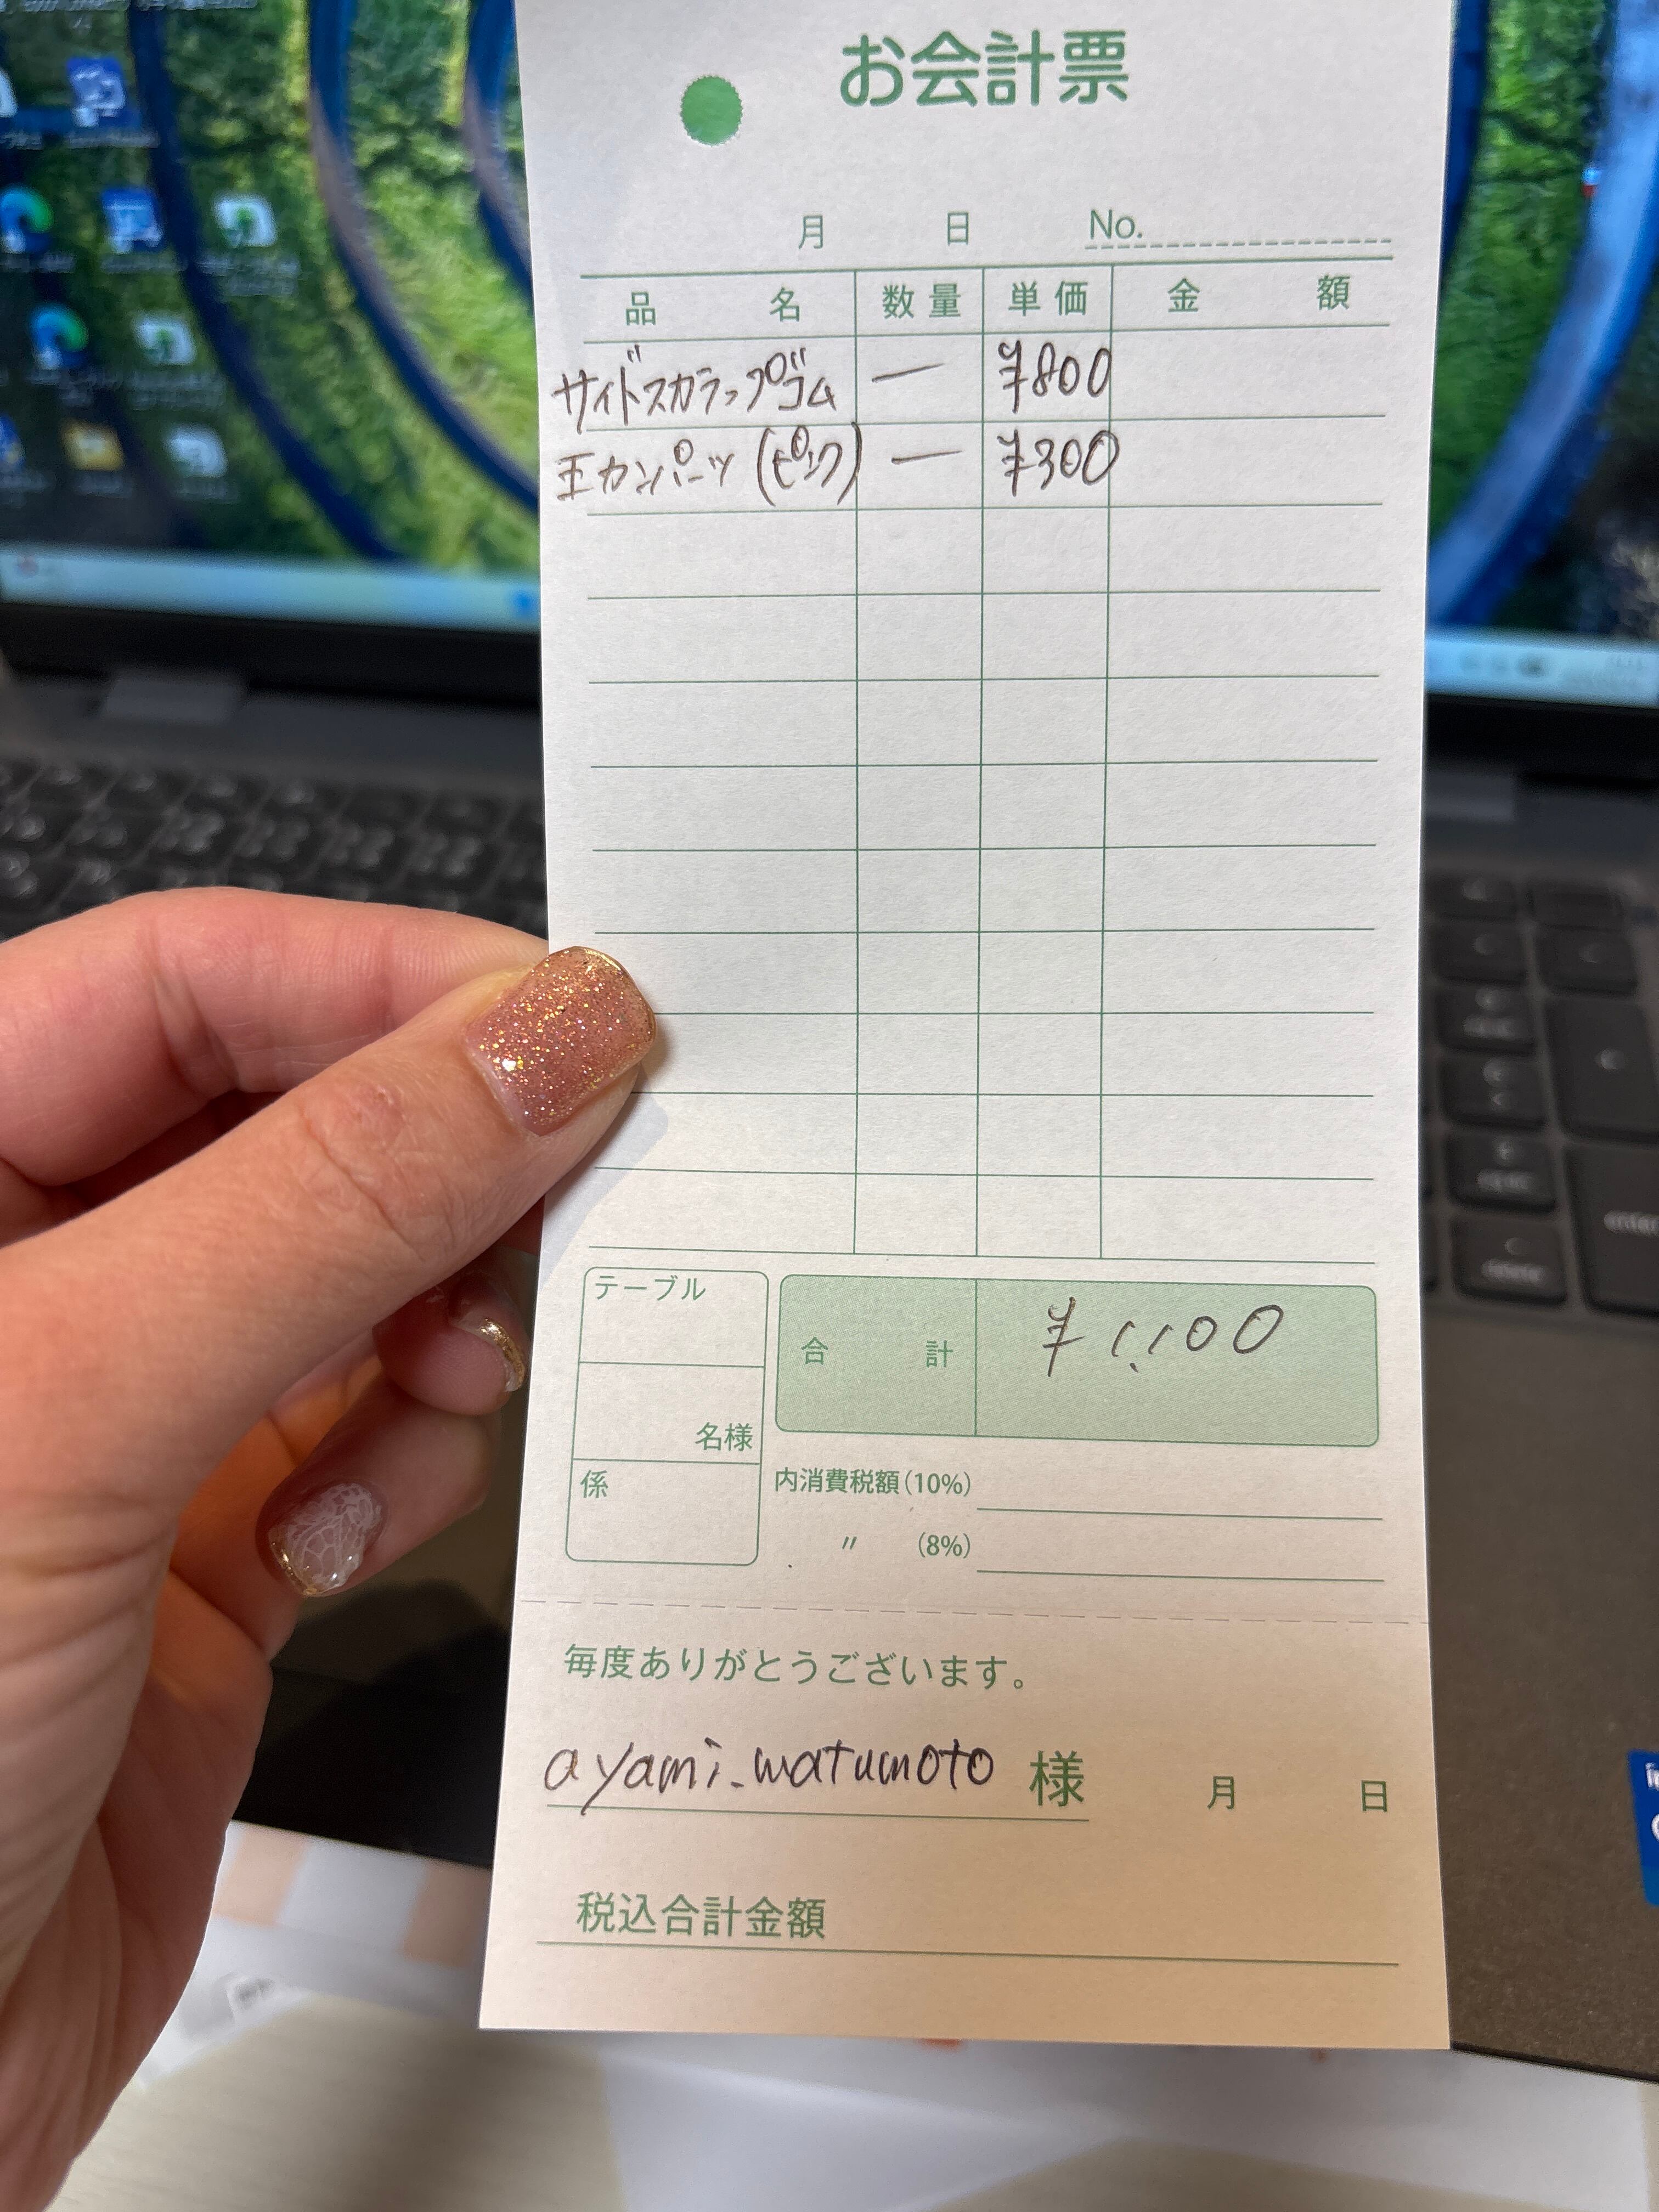 お会計票
月 日 No.
品名 数量 単価 金額
サイドスカラップゴム 一 ¥800
王カンパーツ(ピンク) 一 ¥300
テーブル
合計 ¥1,100
名様
係
内消費税額(10%)
〃 (8%)
毎度ありがとうございます。
ayami_watumoto 様 月 日
税込合計金額